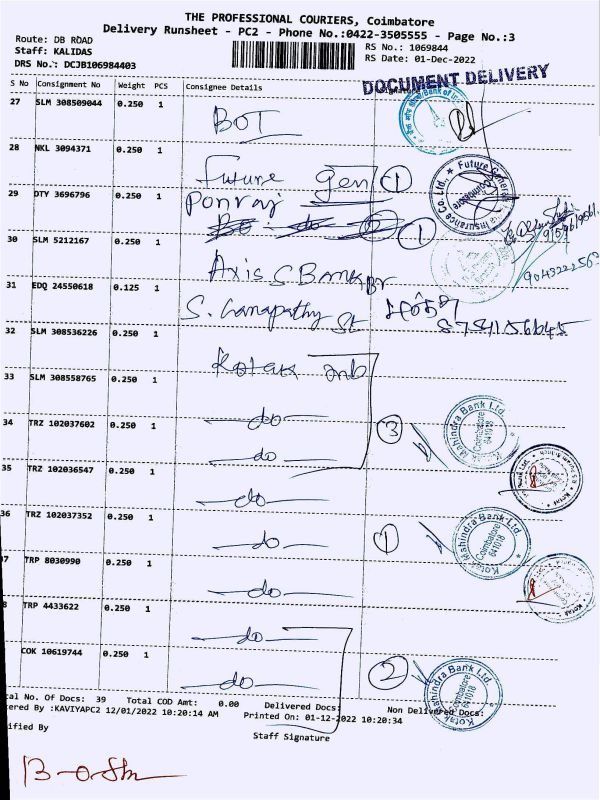 THE PROFESSIONAL COURIERS, Coimbatore
Delivery Runsheet - PC2 - Phone No.:0422-3505555 - Page No.:3
Route: DB ROAD
Staff: KALIDAS
DRS No.: DCJB106984403
RS No.: 1069844
RS Date: 01-Dec-2022
DOCUMENT DELIVERY
S No Consignment No Weight PCS Consignee Details
27 SLM 308509044 0.250 1
BOT
28 NKL 3094371 0.250 1
Future gen 1
29 DTY 3696796 0.250 1
Ponraj
1
30 SLM 5212167 0.250 1
Axis S Bank Br
31 EDQ 24550618 0.125 1
S. Ganapathy St
8754156645
32 SLM 308536226 0.250 1
Kotak
33 SLM 308558765 0.250 1
do
34 TRZ 102037602 0.250 1
3
do
35 TRZ 102036547 0.250 1
do
36 TRZ 102037352 0.250 1
do 1
7 TRP 8030990 0.250 1
do
8 TRP 4433622 0.250 1
do
COK 10619744 0.250 1
do 2
Kotak Mahindra Bank Ltd.
Coimbatore
641018
Kotak Mahindra Bank Ltd
Coimbatore
641018
Kotak Mahindra Bank Ltd
Coimbatore
tal No. Of Docs: 39 Total COD Amt: 0.00 Delivered Docs: Non Delivered Docs:
tered By :KAVIYAPC2 12/01/2022 10:20:14 AM Printed On: 01-12-2022 10:20:34
ified By
Staff Signature